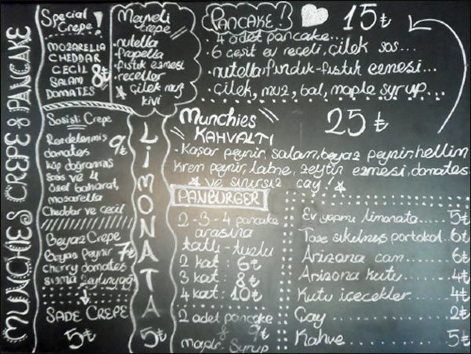 MUNCHIES CREPE & PANCAKE
Special
Crepe
MOZARELLA
CHEDDAR
CECIL
SALAM
DOMATES
8₺
Sosisli Crepe
Rendelenmiş
domates
9₺
sos ve 4
özel baharat,
mozarella
Cheddar ve cecil
Beyaz Crepe
Beyaz Peynir
7₺
Cherry domates
SADE CREPE
5₺
Meyveli
Crepe
nutella
fıstık ezmesi
reçeller
çilek muz
kivi
LIMONATA
5₺
PANCAKE!
15₺
4 adet pancake
6 çeşit ev reçeli, çilek sos...
nutella fındık-fıstık ezmesi...
çilek, muz, bal, maple syrup...
Munchies
KAHVALTI
25₺
Kaşar peynir, salam, beyaz peynir, hellim
Krem peynir, labne, zeytin ezmesi, domates
ve sınırsız çay!
PANBURGER
2-3-4 pancake
arasına
tatlı-tuzlu
2 kat 6₺
3 kat 8₺
4 kat 10₺
2 adet pancake
9₺
maple syrup
Ev yapımı limonata.... 5₺
Taze sıkılmış portakal.. 6₺
Arizona cam.... 6₺
Arizona kutu.... 4₺
Kutu içecekler.... 4₺
Çay.... 2₺
Kahve.... 5₺